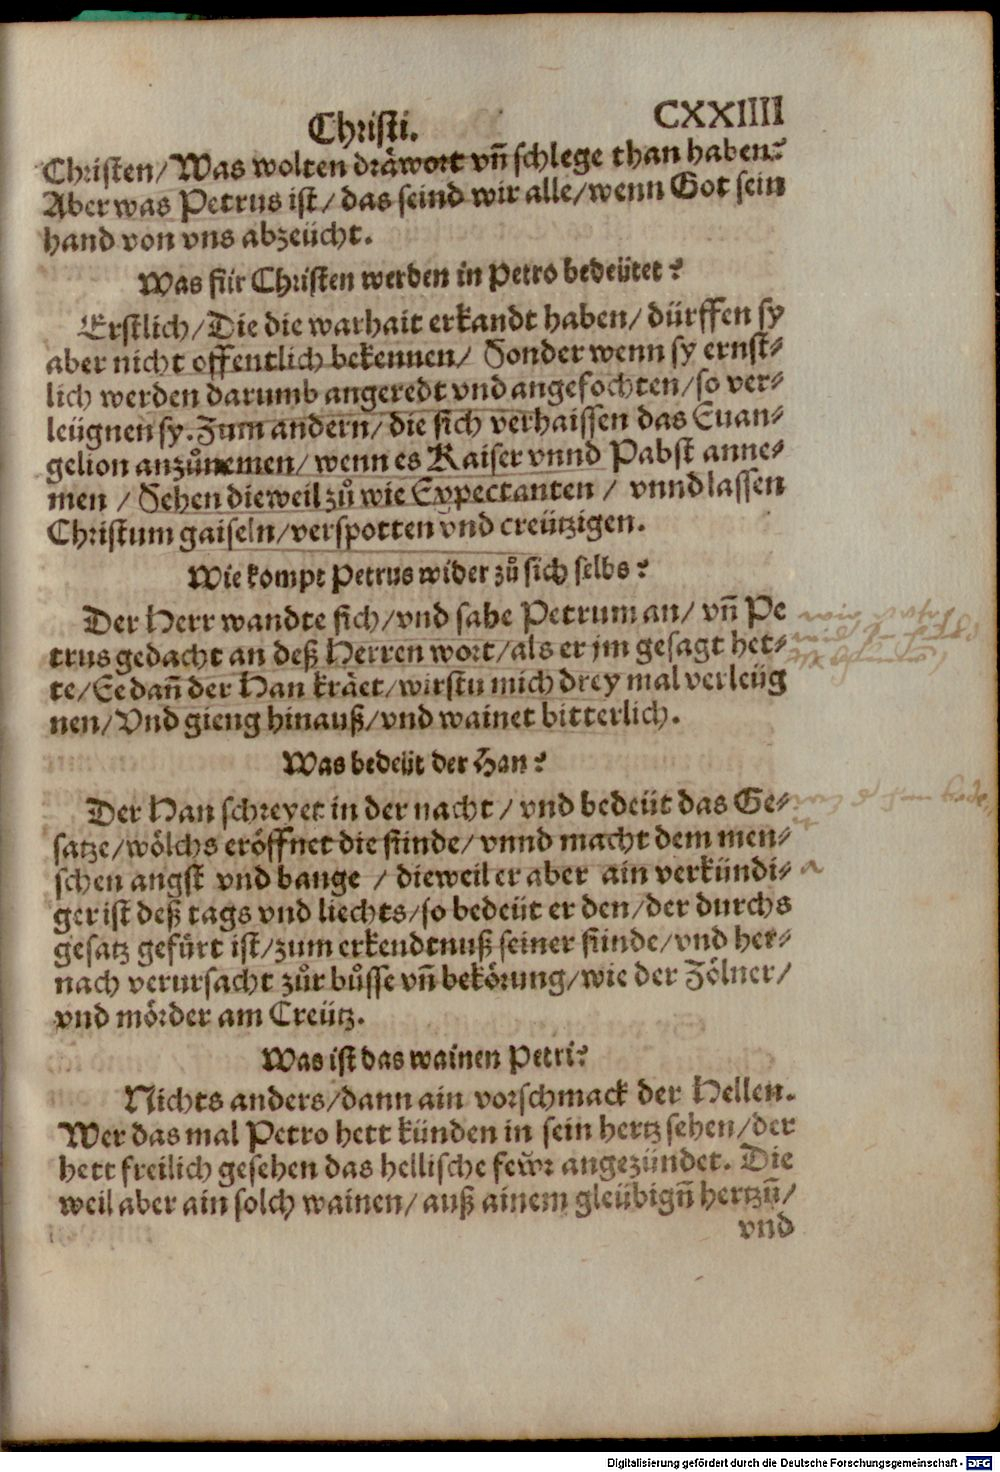 Christi. CXXIIII
Christen/ Was wolten dräwort vñ schlege than haben?
Aber was Petrus ist/ das seind wir alle/ wenn Got sein
hand von vns abzeücht.
Was für Christen werden in Petro bedeütet?
Erstlich/ Die die warhait erkandt haben/ dürffen sy
aber nicht offentlich bekennen/ Sonder wenn sy ernst⸗
lich werden darumb angeredt vnd angefochten/ so ver⸗
leügnen sy. Zum andern/ die sich verhaissen das Euan⸗
gelion anzůnemen/ wenn es Kaiser vnnd Pabst anne⸗
men / Sehen dieweil zů wie Expectanten / vnnd lassen
Christum gaiseln/ verspotten vnd creützigen.
Wie kompt Petrus wider zů sich selbs?
Der Herr wandte sich/ vnd sahe Petrum an/ vñ Pe
trus gedacht an deß Herren wort/ als er jm gesagt het⸗
te/ Ee dañ der Han kräet/ wirstu mich drey mal verleüg
nen/ Vnd gieng hinauß/ vnd wainet bitterlich.
Was bedeüt der Han?
Der Han schreyet in der nacht / vnd bedeüt das Ge⸗
satze/ wölchs eröffnet die sünde/ vnnd macht dem men⸗
schen angst vnd bange / dieweil er aber ain verkündi⸗
ger ist deß tags vnd liechts/ so bedeüt er den/ der durchs
gesatz gefürt ist/ zum erkendtnuß seiner sünde/ vnd her⸗
nach verursacht zůr bůsse vñ bekörung/ wie der Zölner/
vnd mörder am Creütz.
Was ist das wainen Petri?
Nichts anders/ dann ain vorschmack der Hellen.
Wer das mal Petro hett künden in sein hertz sehen/ der
hett freilich gesehen das hellische fewr angezündet. Die
weil aber ain solch wainen/ auß ainem gleübigñ hertzñ/
vnd
Digitalisierung gefördert durch die Deutsche Forschungsgemeinschaft - DFG